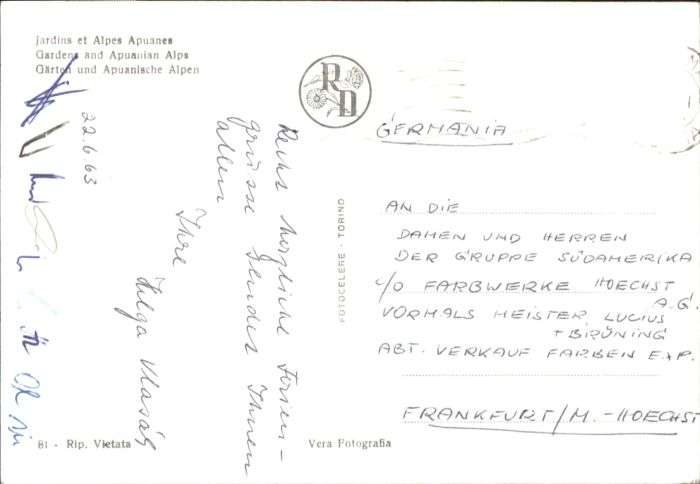 Jardins et Alpes Apuanes
Gardens and Apuanian Alps
Gärten und Apuanische Alpen
22.6.63
Recht herzliche Ferien-
grüsse sendet Ihnen
allen
Ihre
Helga
81 - Rip. Vietata
FOTOCELERE - TORINO
Vera Fotografia
RD
GERMANIA
AN DIE
DAMEN UND HERREN
DER GRUPPE SÜDAMERIKA
c/o FARBWERKE HOECHST
A.G.
VORMALS MEISTER LUCIUS
+ BRÜNING
ABT. VERKAUF FARBEN EXP.
FRANKFURT/M. - HOECHST